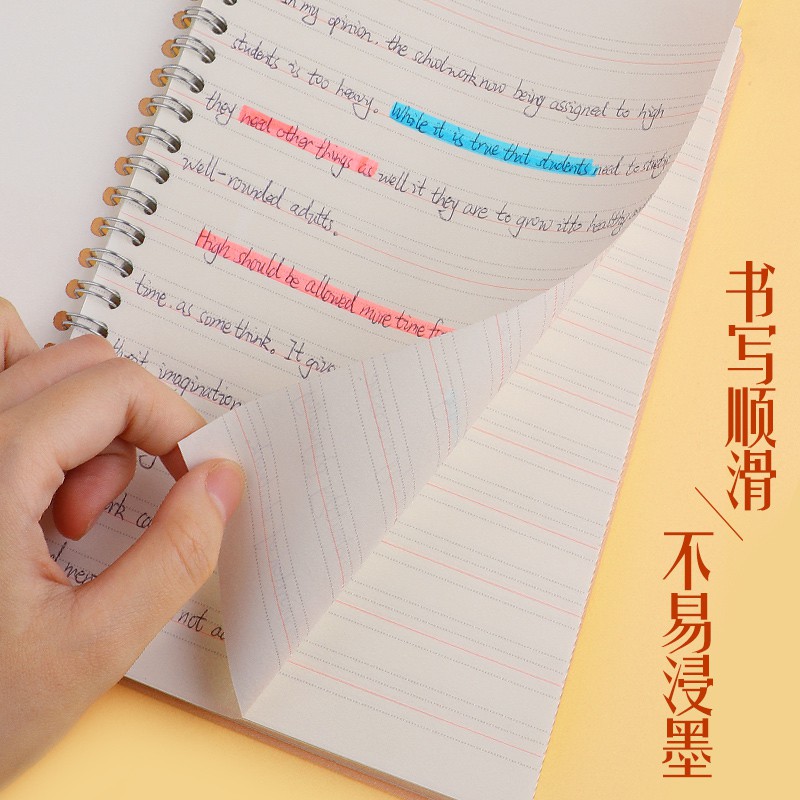 in my opinion, the schoolwork now being assigned to high
students is too heavy. While it is true that students need to study
they need other things as well it they are to grow itto healthy
well-rounded adutts.
High should be allowed more time
time. as some think. It give
imagination
not
书写顺滑
不易浸墨